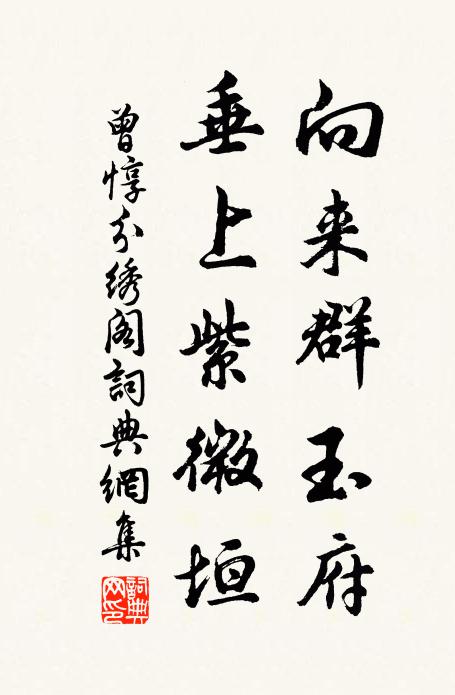 向来群玉府
垂上紫微垣
曾惇分绣阁詞典網集
詞典网印